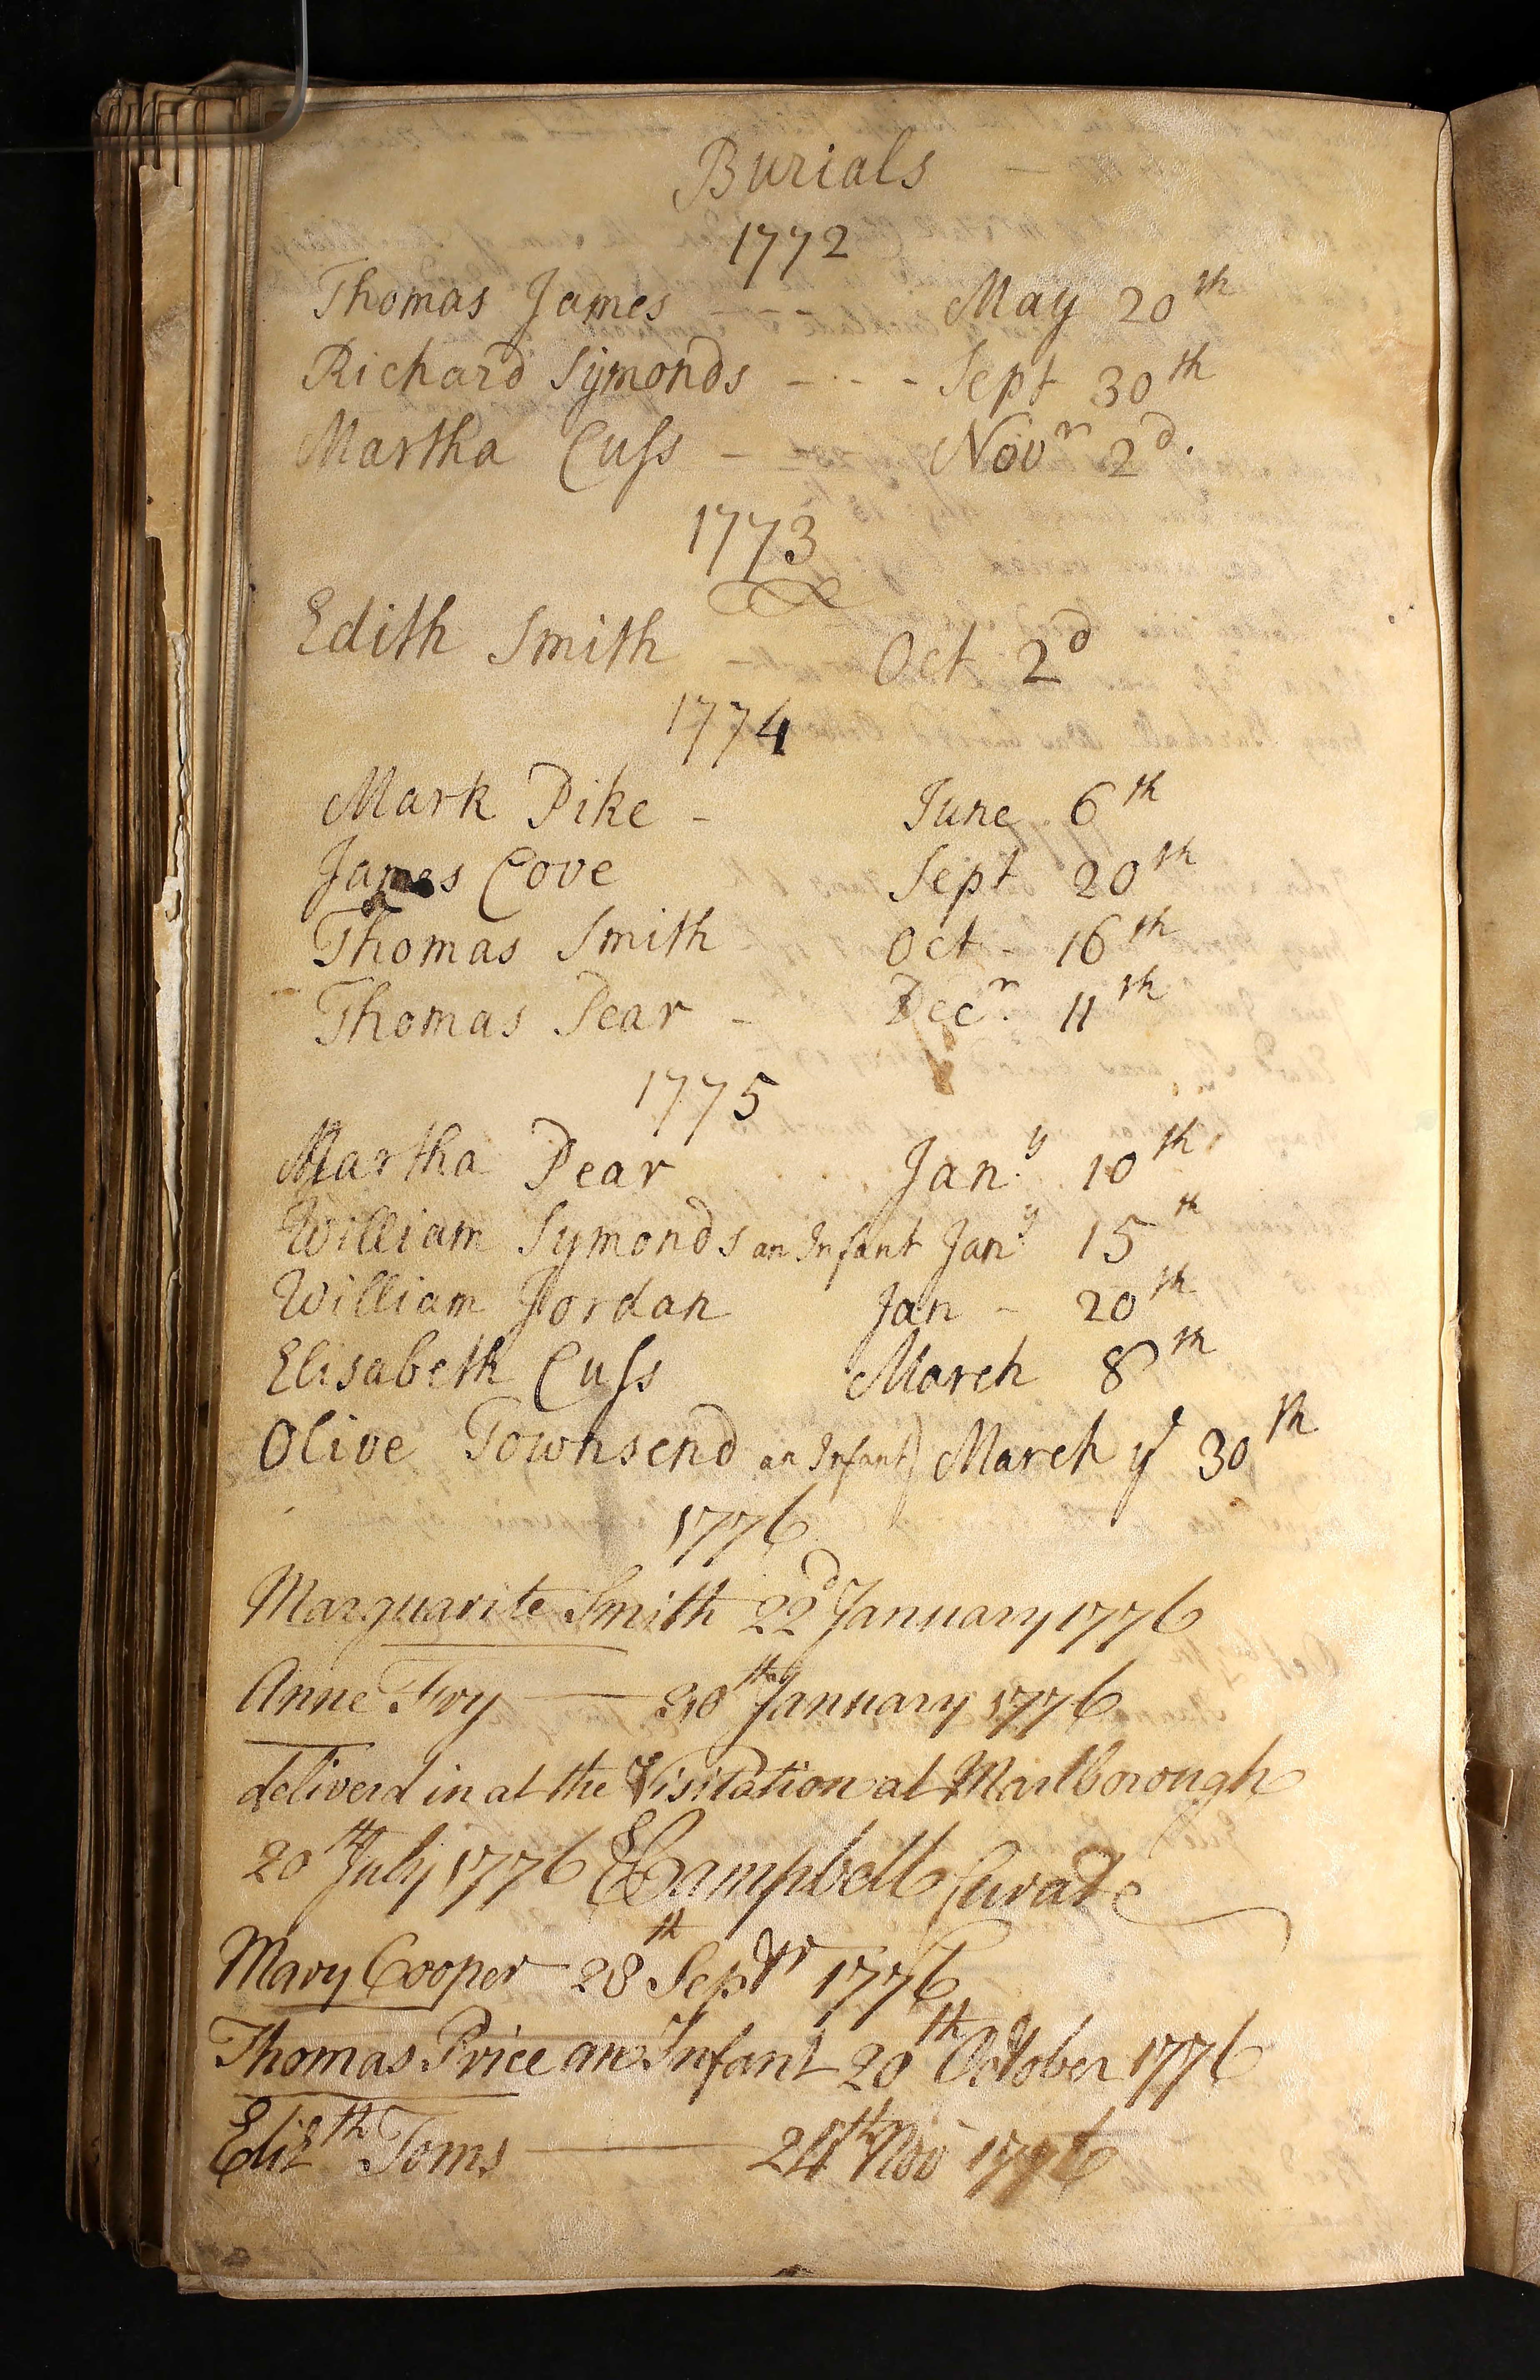 Burials
1772
Thomas James May 20th
Richard Symonds - - - - Sept 30th
Martha Cuſs - Novr 2d.
1773
Edith Smith Oct 2d
1774
Mark Pike - June 6th
James Cove Sept 20th
Thomas Smith Oct - 16th
Thomas Pear - Decr. 11th
1775
Martha Pear Jany 10th
William Symonds an Infant Jany 15th
William Jordan Jan - 20th
Elisabeth Cuſs March 8th
Olive Townsend an Infant) March ye 30th
1776
Marguarite Smith 22d January 1776
Anne Fry — 30th January 1776
deliverd in at the Visitation at Marlborough
20th July 1776 ECampbell Curate
Mary Cooper 28th Septr 1776
Thomas Price an Infant 20th October 1776
Elizth Toms — 24th Nov 1776